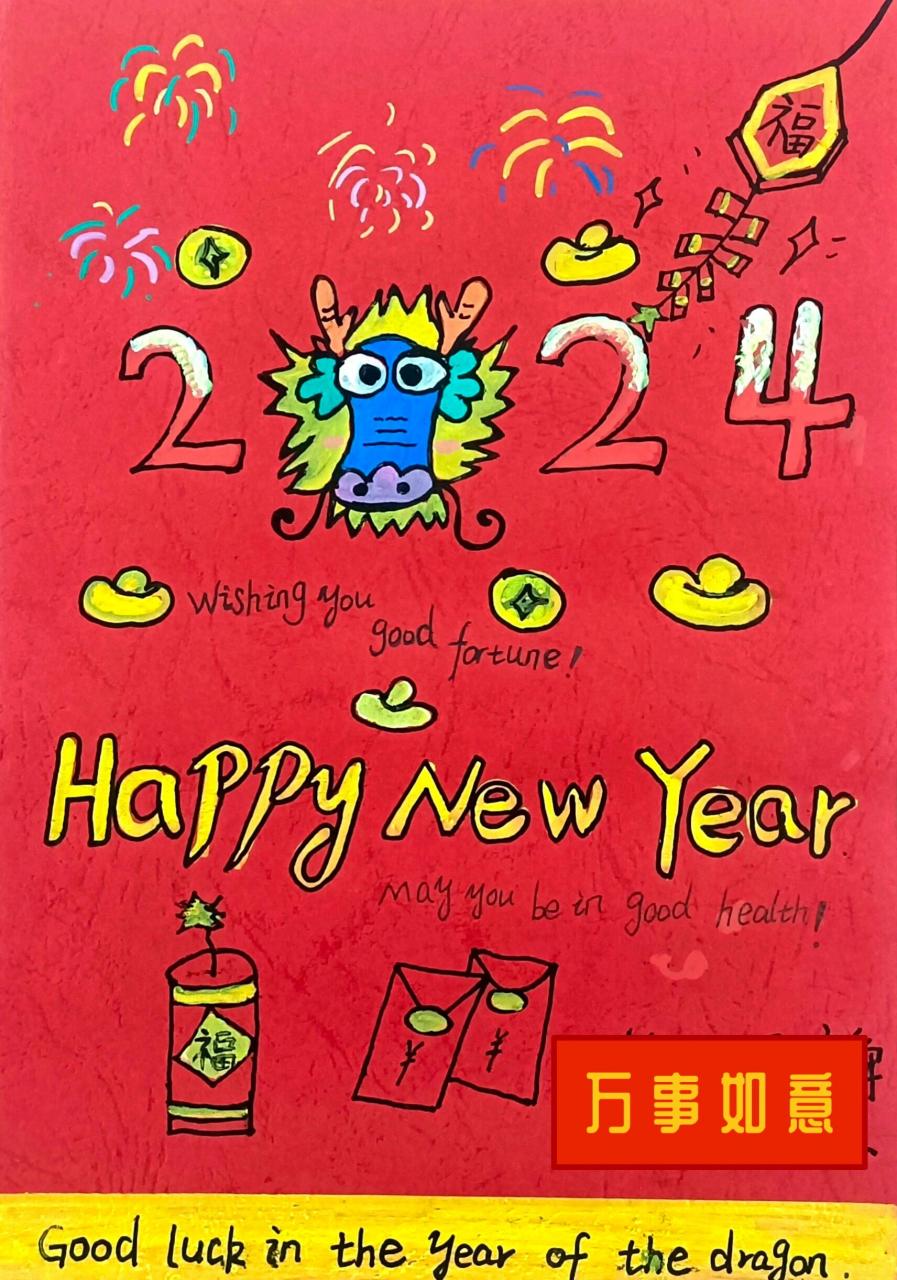 福
2 24
Wishing you
good fortune!
Happy New Year
May you be in good health!
福
¥ ¥
万事如意
Good luck in the year of the dragon.